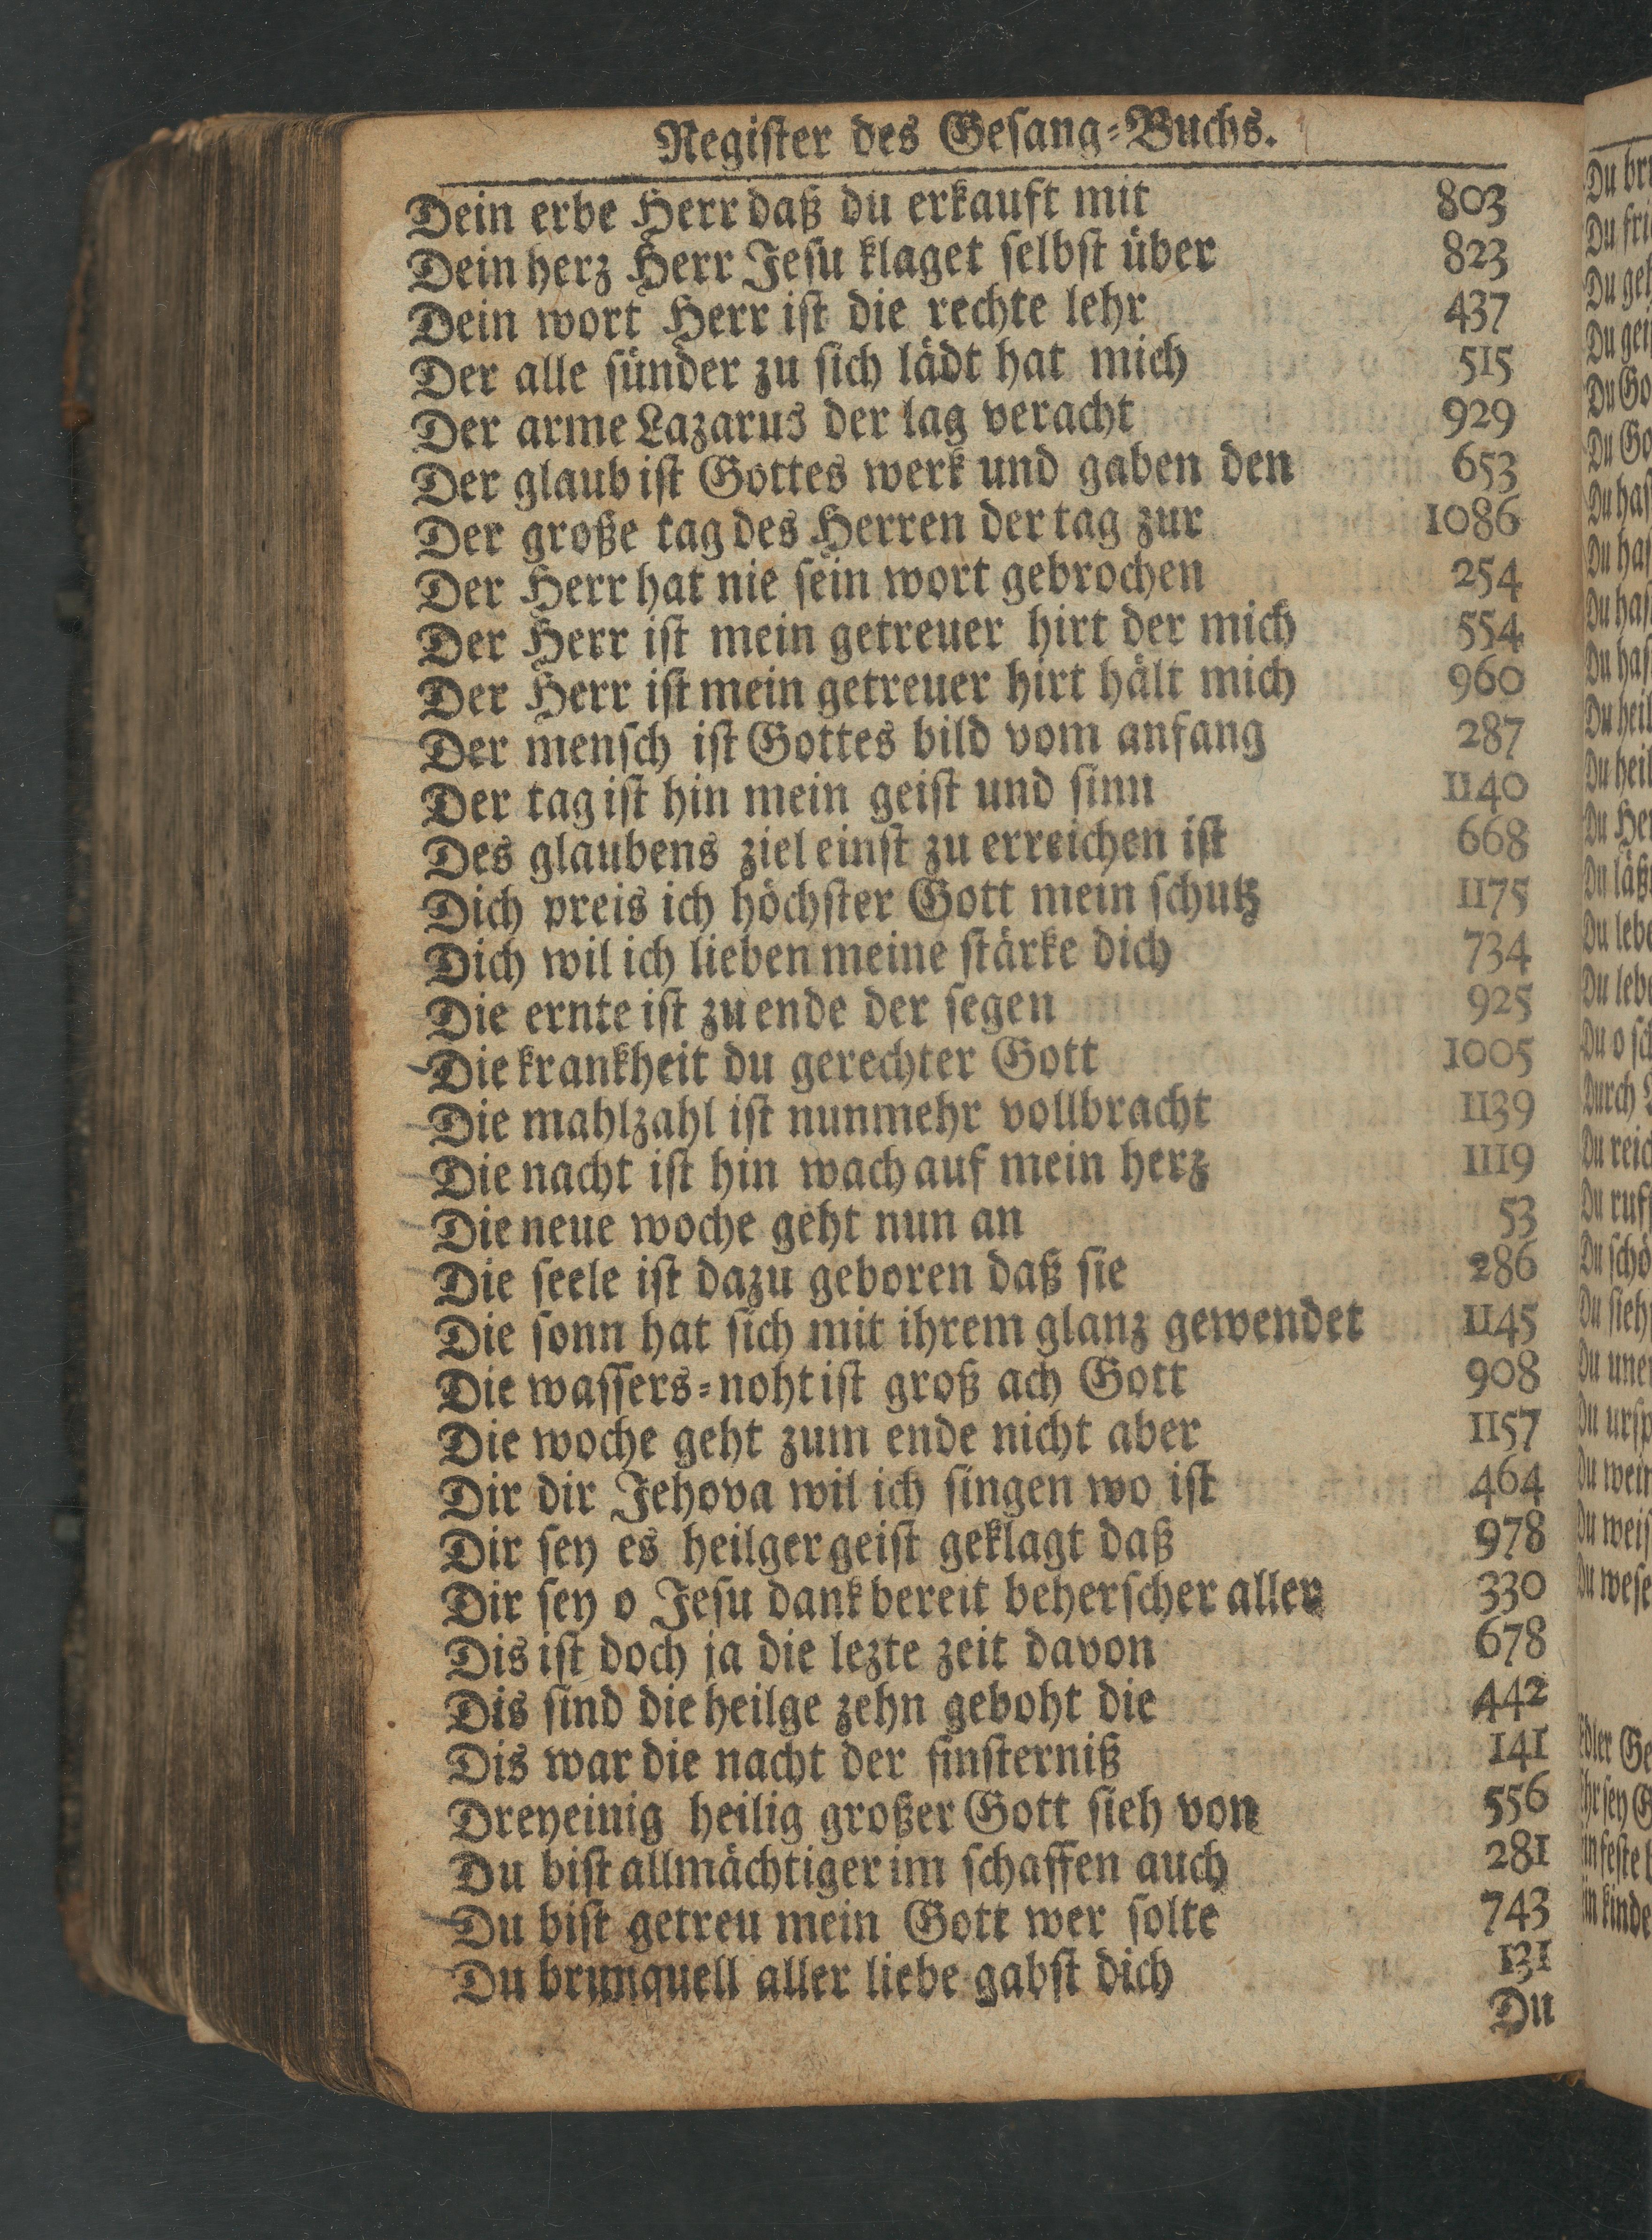 Regiſter des Geſang-Buchs.
Dein erbe Herr daß du erkauft mit 803
Dein herz Herr Jeſu klaget ſelbſt über 823
Dein wort Herr iſt die rechte lehr 437
Der alle ſünder zu ſich lädt hat mich 515
Der arme Lazarus der lag veracht 929
Der glaub iſt Gottes werk und gaben den 653
Der große tag des Herren der tag zur 1086
Der Herr hat nie ſein wort gebrochen 254
Der Herr iſt mein getreuer hirt der mich 554
Der Herr iſt mein getreuer hirt hält mich 960
Der menſch iſt Gottes bild vom anfang 287
Der tag iſt hin mein geiſt und ſinn 1140
Des glaubens ziel einſt zu erreichen iſt 668
Dich preis ich höchſter Gott mein ſchutz 1175
Dich wil ich lieben meine ſtärke dich 734
Die ernte iſt zu ende der ſegen 925
Die krankheit du gerechter Gott 1005
Die mahlzahl iſt nunmehr vollbracht 1139
Die nacht iſt hin wach auf mein herz 1119
Die neue woche geht nun an 53
Die ſeele iſt dazu geboren daß ſie 286
Die ſonn hat ſich mit ihrem glanz gewendet 1145
Die waſſers-noht iſt groß ach Gott 908
Die woche geht zum ende nicht aber 1157
Dir dir Jehova wil ich ſingen wo iſt 464
Dir ſey es heilger geiſt geklagt daß 978
Dir ſey o Jeſu dank bereit beherſcher aller 330
Dis iſt doch ja die lezte zeit davon 678
Dis ſind die heilge zehn geboht die 442
Dis war die nacht der finſterniß 141
Dreyeinig heilig großer Gott ſieh von 556
Du biſt allmächtiger im ſchaffen auch 281
Du biſt getreu mein Gott wer ſolte 743
Du brunquell aller liebe gabſt dich 131
Du